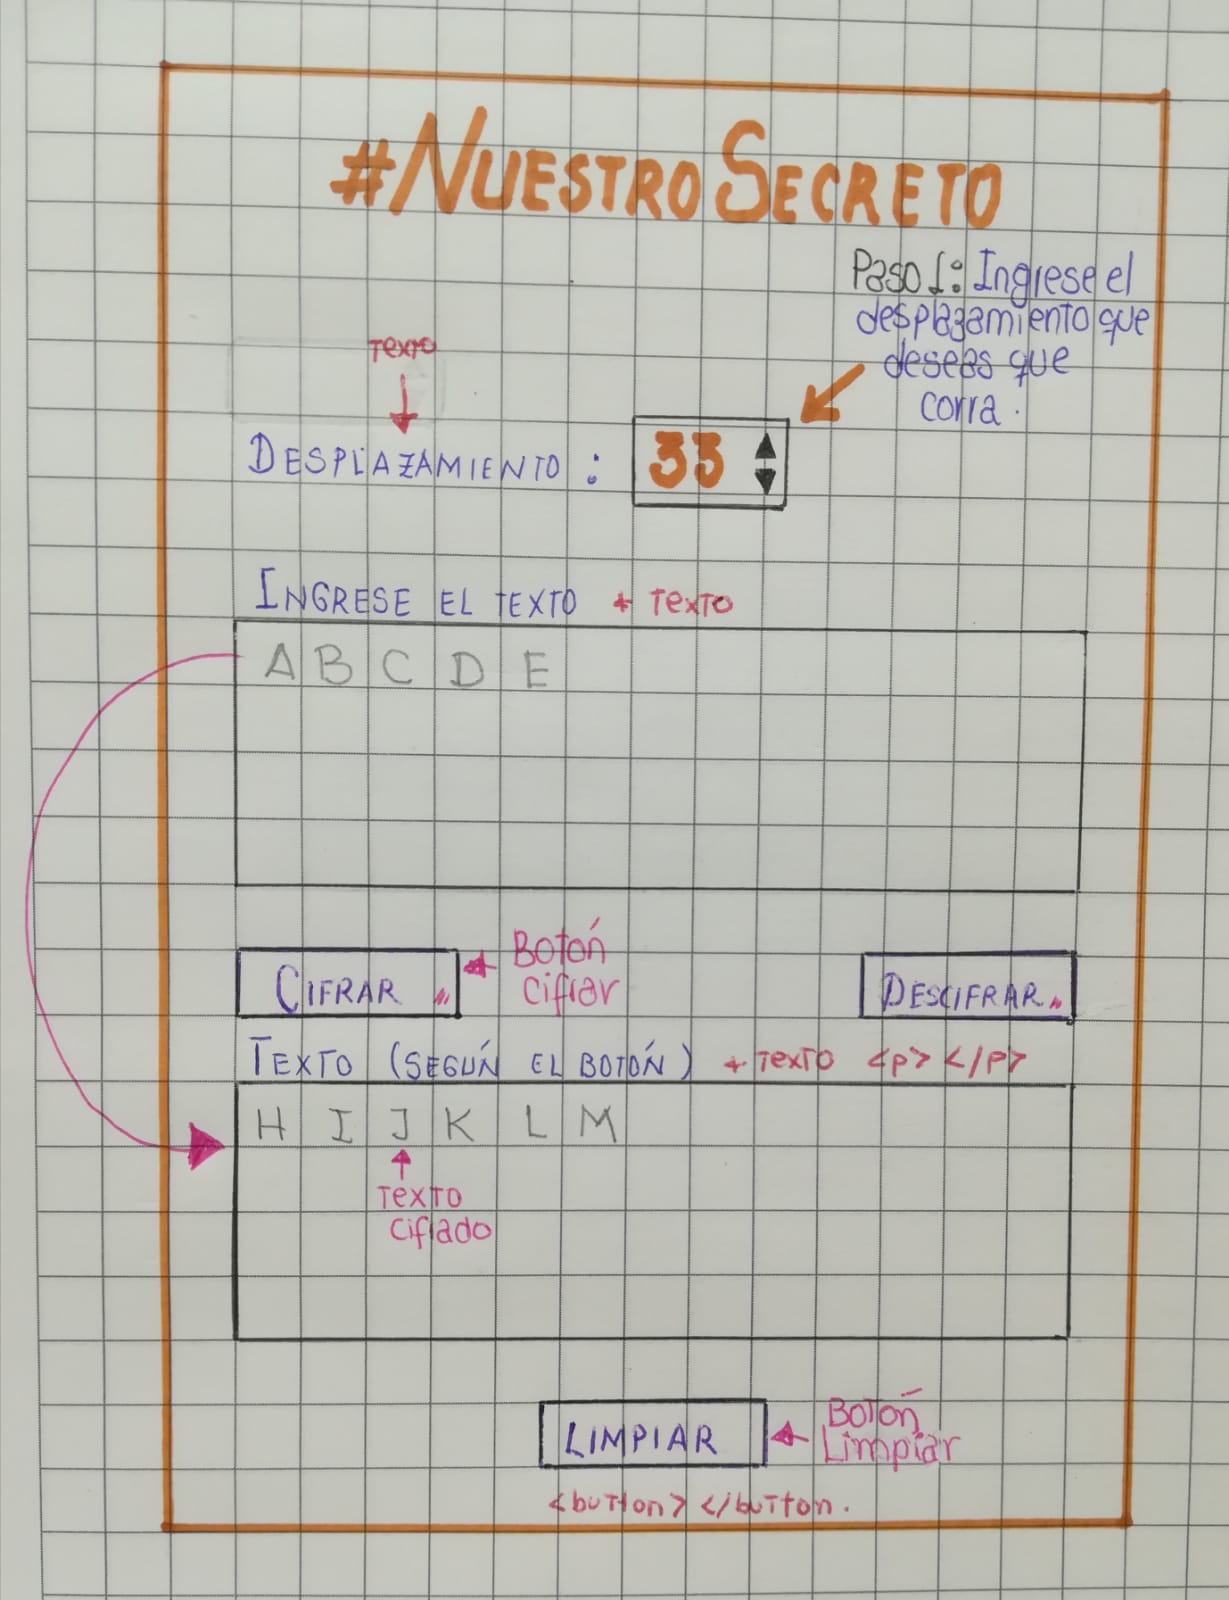 #NUESTROSECRETO
Paso 1: Ingrese el
desplazamiento que
deseas que
corra.
Texto
DESPLAZAMIENTO : 33
INGRESE EL TEXTO + Texto
A B C D E
CIFRAR
Botón
cifrar
DESCIFRAR
TEXTO (SEGÚN EL BOTÓN) + Texto <p> </p>
H I J K L M
Texto
cifrado
LIMPIAR
Botón
Limpiar
<button> </button.